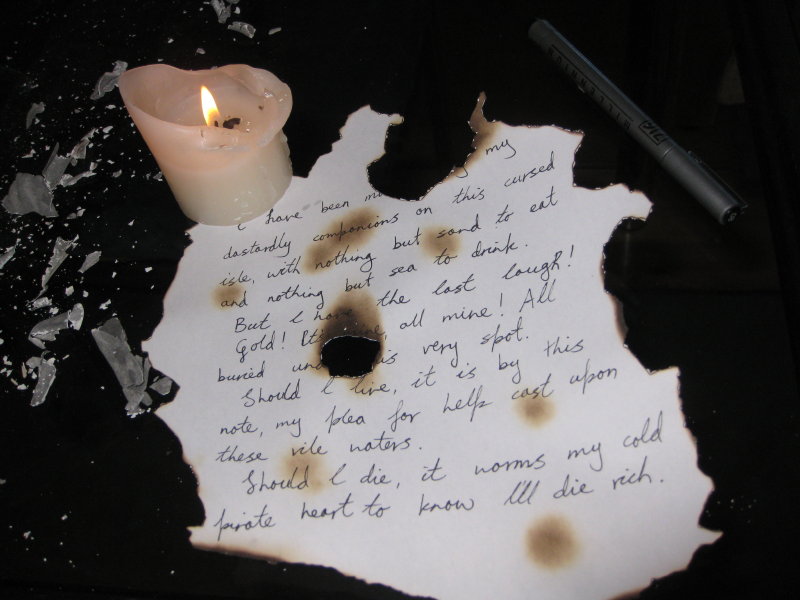 I have been my
dastardly companions on this cursed
isle, with nothing but sand to eat
and nothing but sea to drink.
But I have the last laugh!
Gold! It's all mine! All
buried very spot.
Should I live, it is by this
note, my plea for help cast upon
these vile waters.
Should I die, it warms my cold
pirate heart to know I'll die rich.